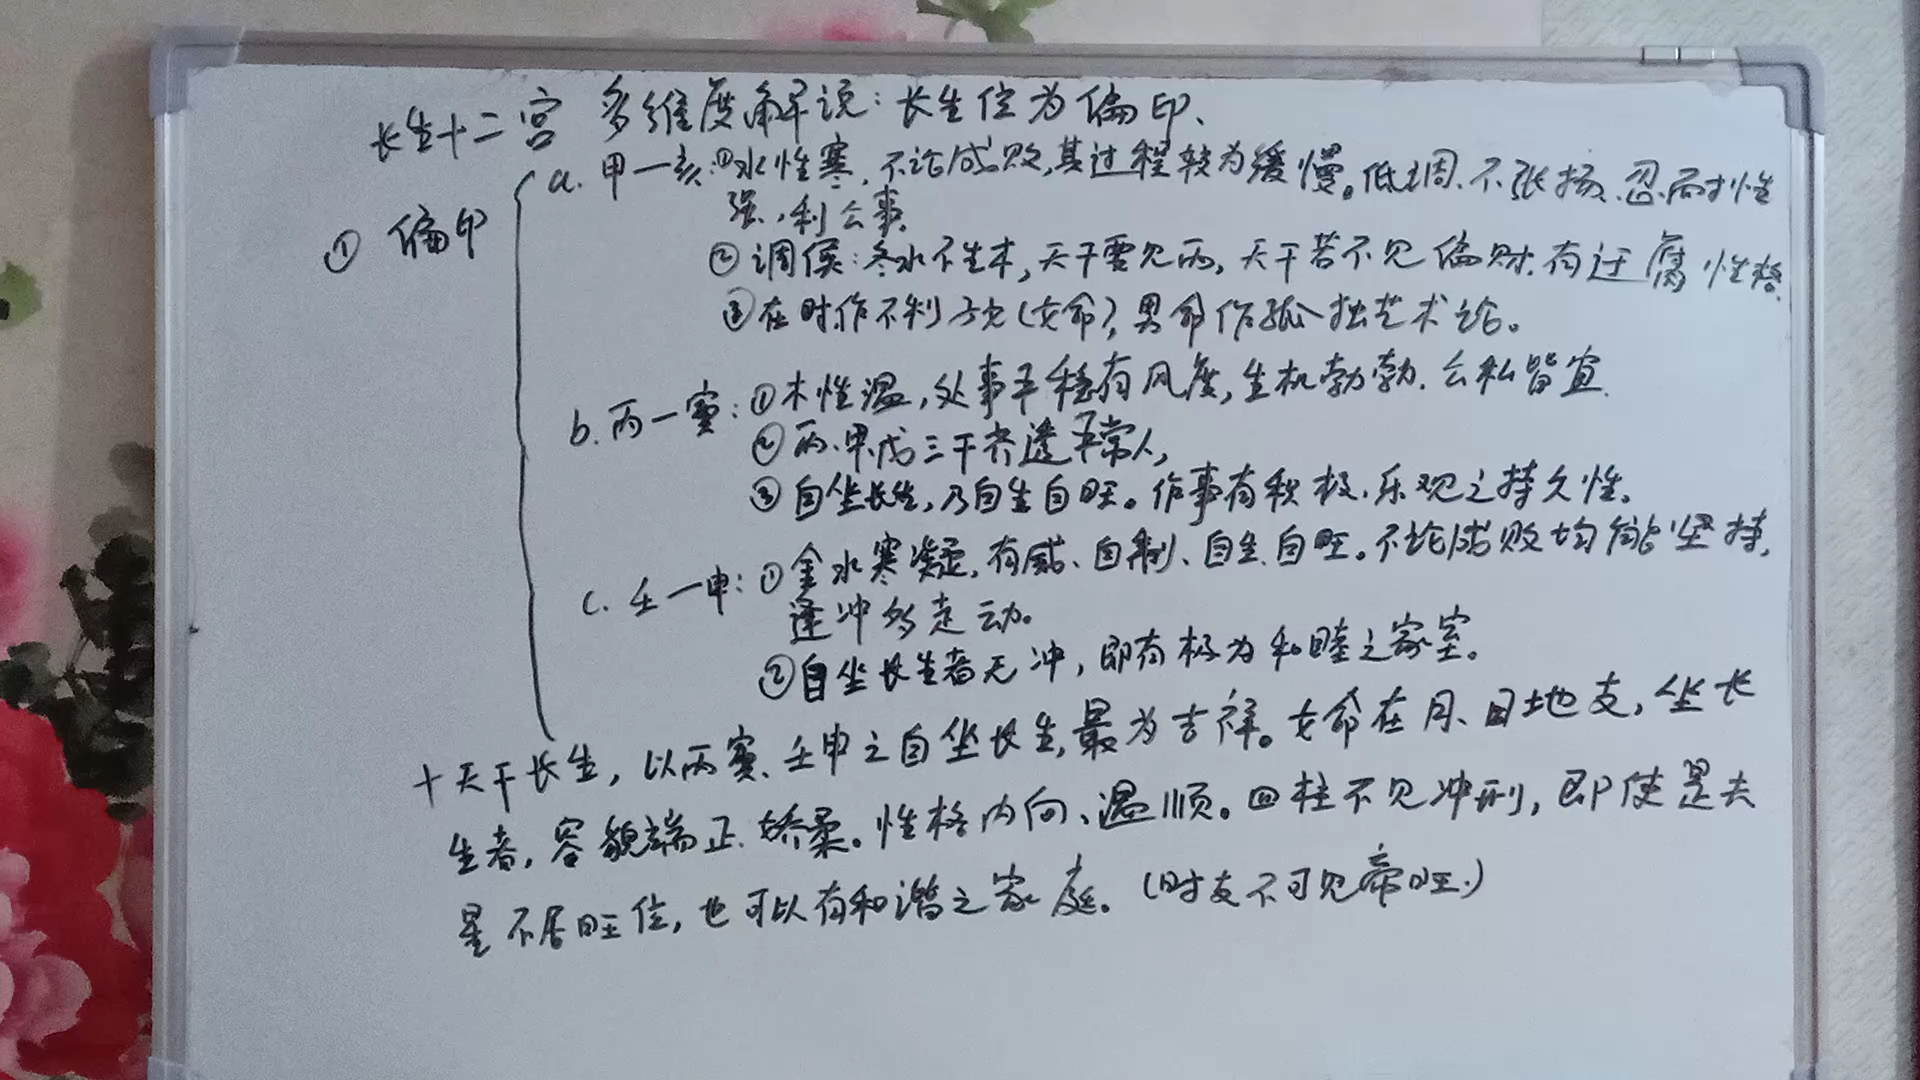 长生十二宫 多维度解说：长生位为偏印、
a. 甲一亥：①水性寒，不论成败，其过程较为缓慢。低调、不张扬、忍耐性
① 偏印
强，利公事。
②调侯：冬水不生木，天干要见丙，天干若不见偏财，有迂腐性格
③在时作不利子儿（女命），男命作孤独艺术论。
b. 丙一寅：①木性温，处事平稳有风度，生机勃勃、公私皆宜.
②丙、甲戊三干齐透 非常人，
③自坐长生，乃自生自旺。作事有积极、乐观之持久性。
c. 壬一申：①金水寒凝，有威、自制、自生、自旺。不论成败均能坚持，
逢冲多走动。
②自坐长生者无冲，即有极为和睦之家室。
十天干长生，以丙寅、壬申之自坐长生，最为吉祥。女命在月、日地支，坐长
生者，容貌端正、娇柔。性格内向、温顺。四柱不见冲刑，即使是夫
星不居旺位，也可以有和谐之家庭。（时支不可见帝旺.）